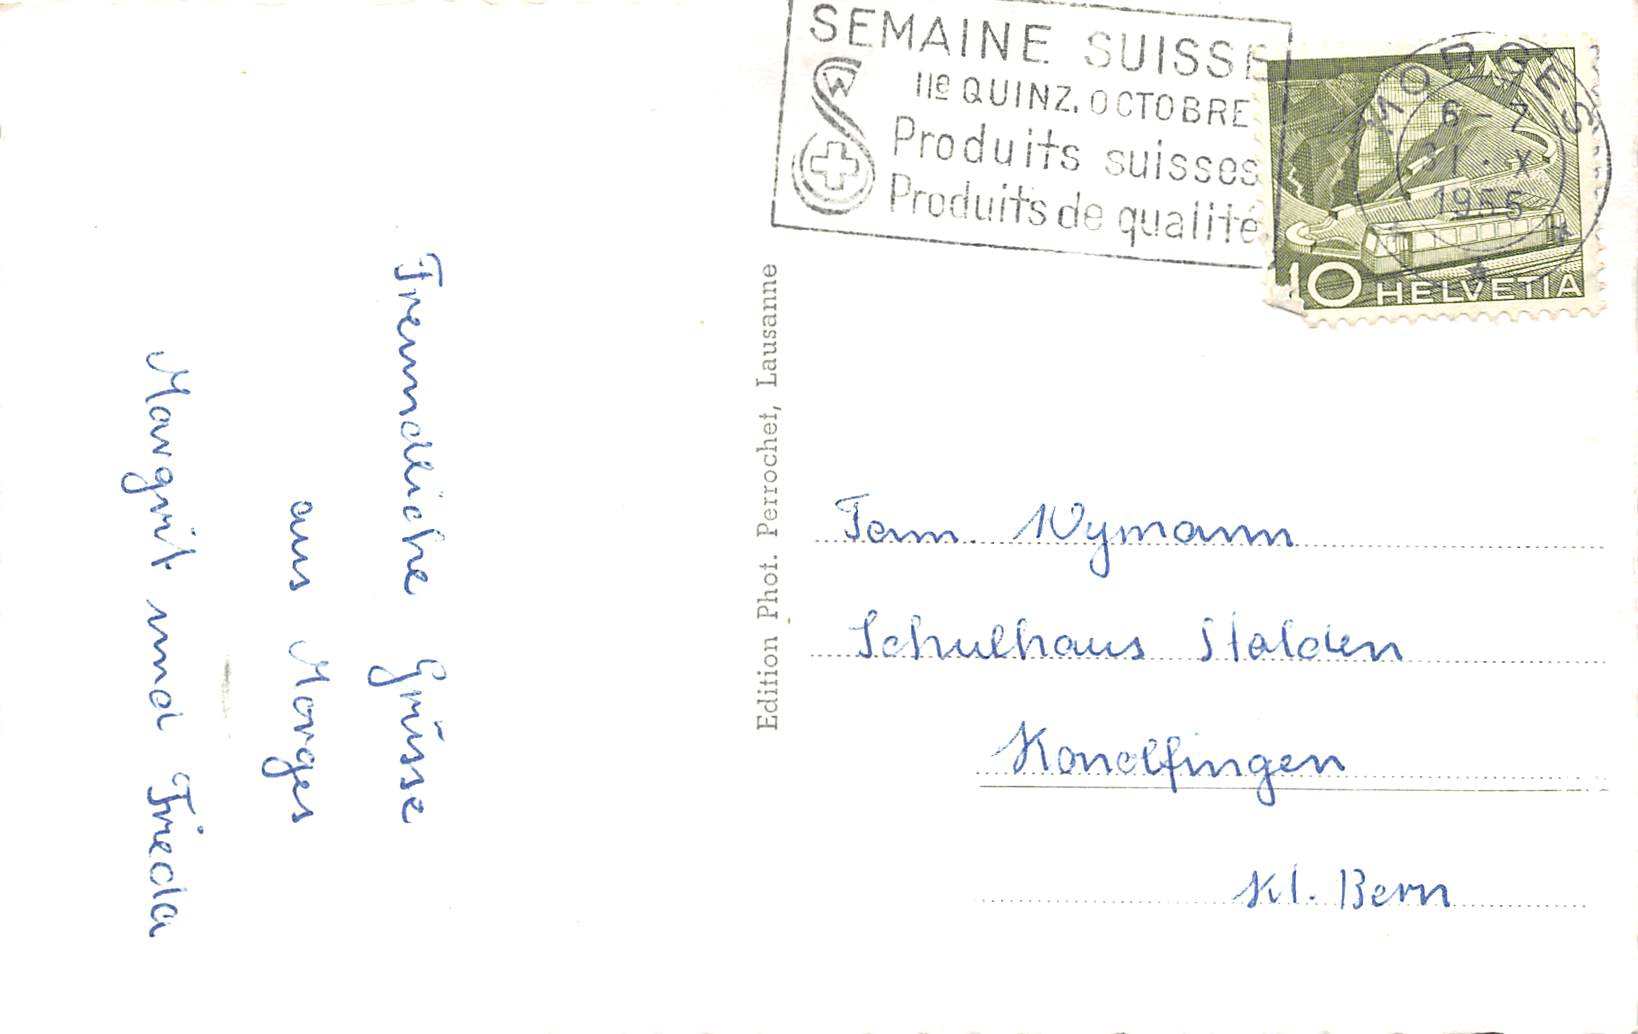 Freundliche Grüsse
aus Morges
Margrit und Frieda
Edition Phot. Perrochet, Lausanne
SEMAINE SUISSE
IIe QUINZ. OCTOBRE
Produits suisses
Produits de qualité
W
MORGES
6-7
31.X
1955
10 HELVETIA
Fam. Wymann
Schulhaus Stalden
Konolfingen
Kt. Bern